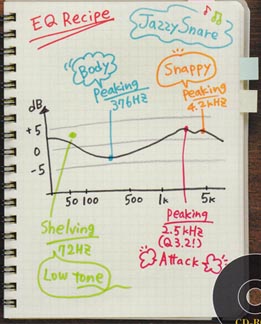 EQ Recipe
Jazzy Snare
Body
Peaking
376Hz
Snappy
Peaking
4.2kHz
dB
+5
0
-5
50 100 500 1k 5k
Shelving
72Hz
Low tone
Peaking
2.5kHz
(Q3.2!)
Attack